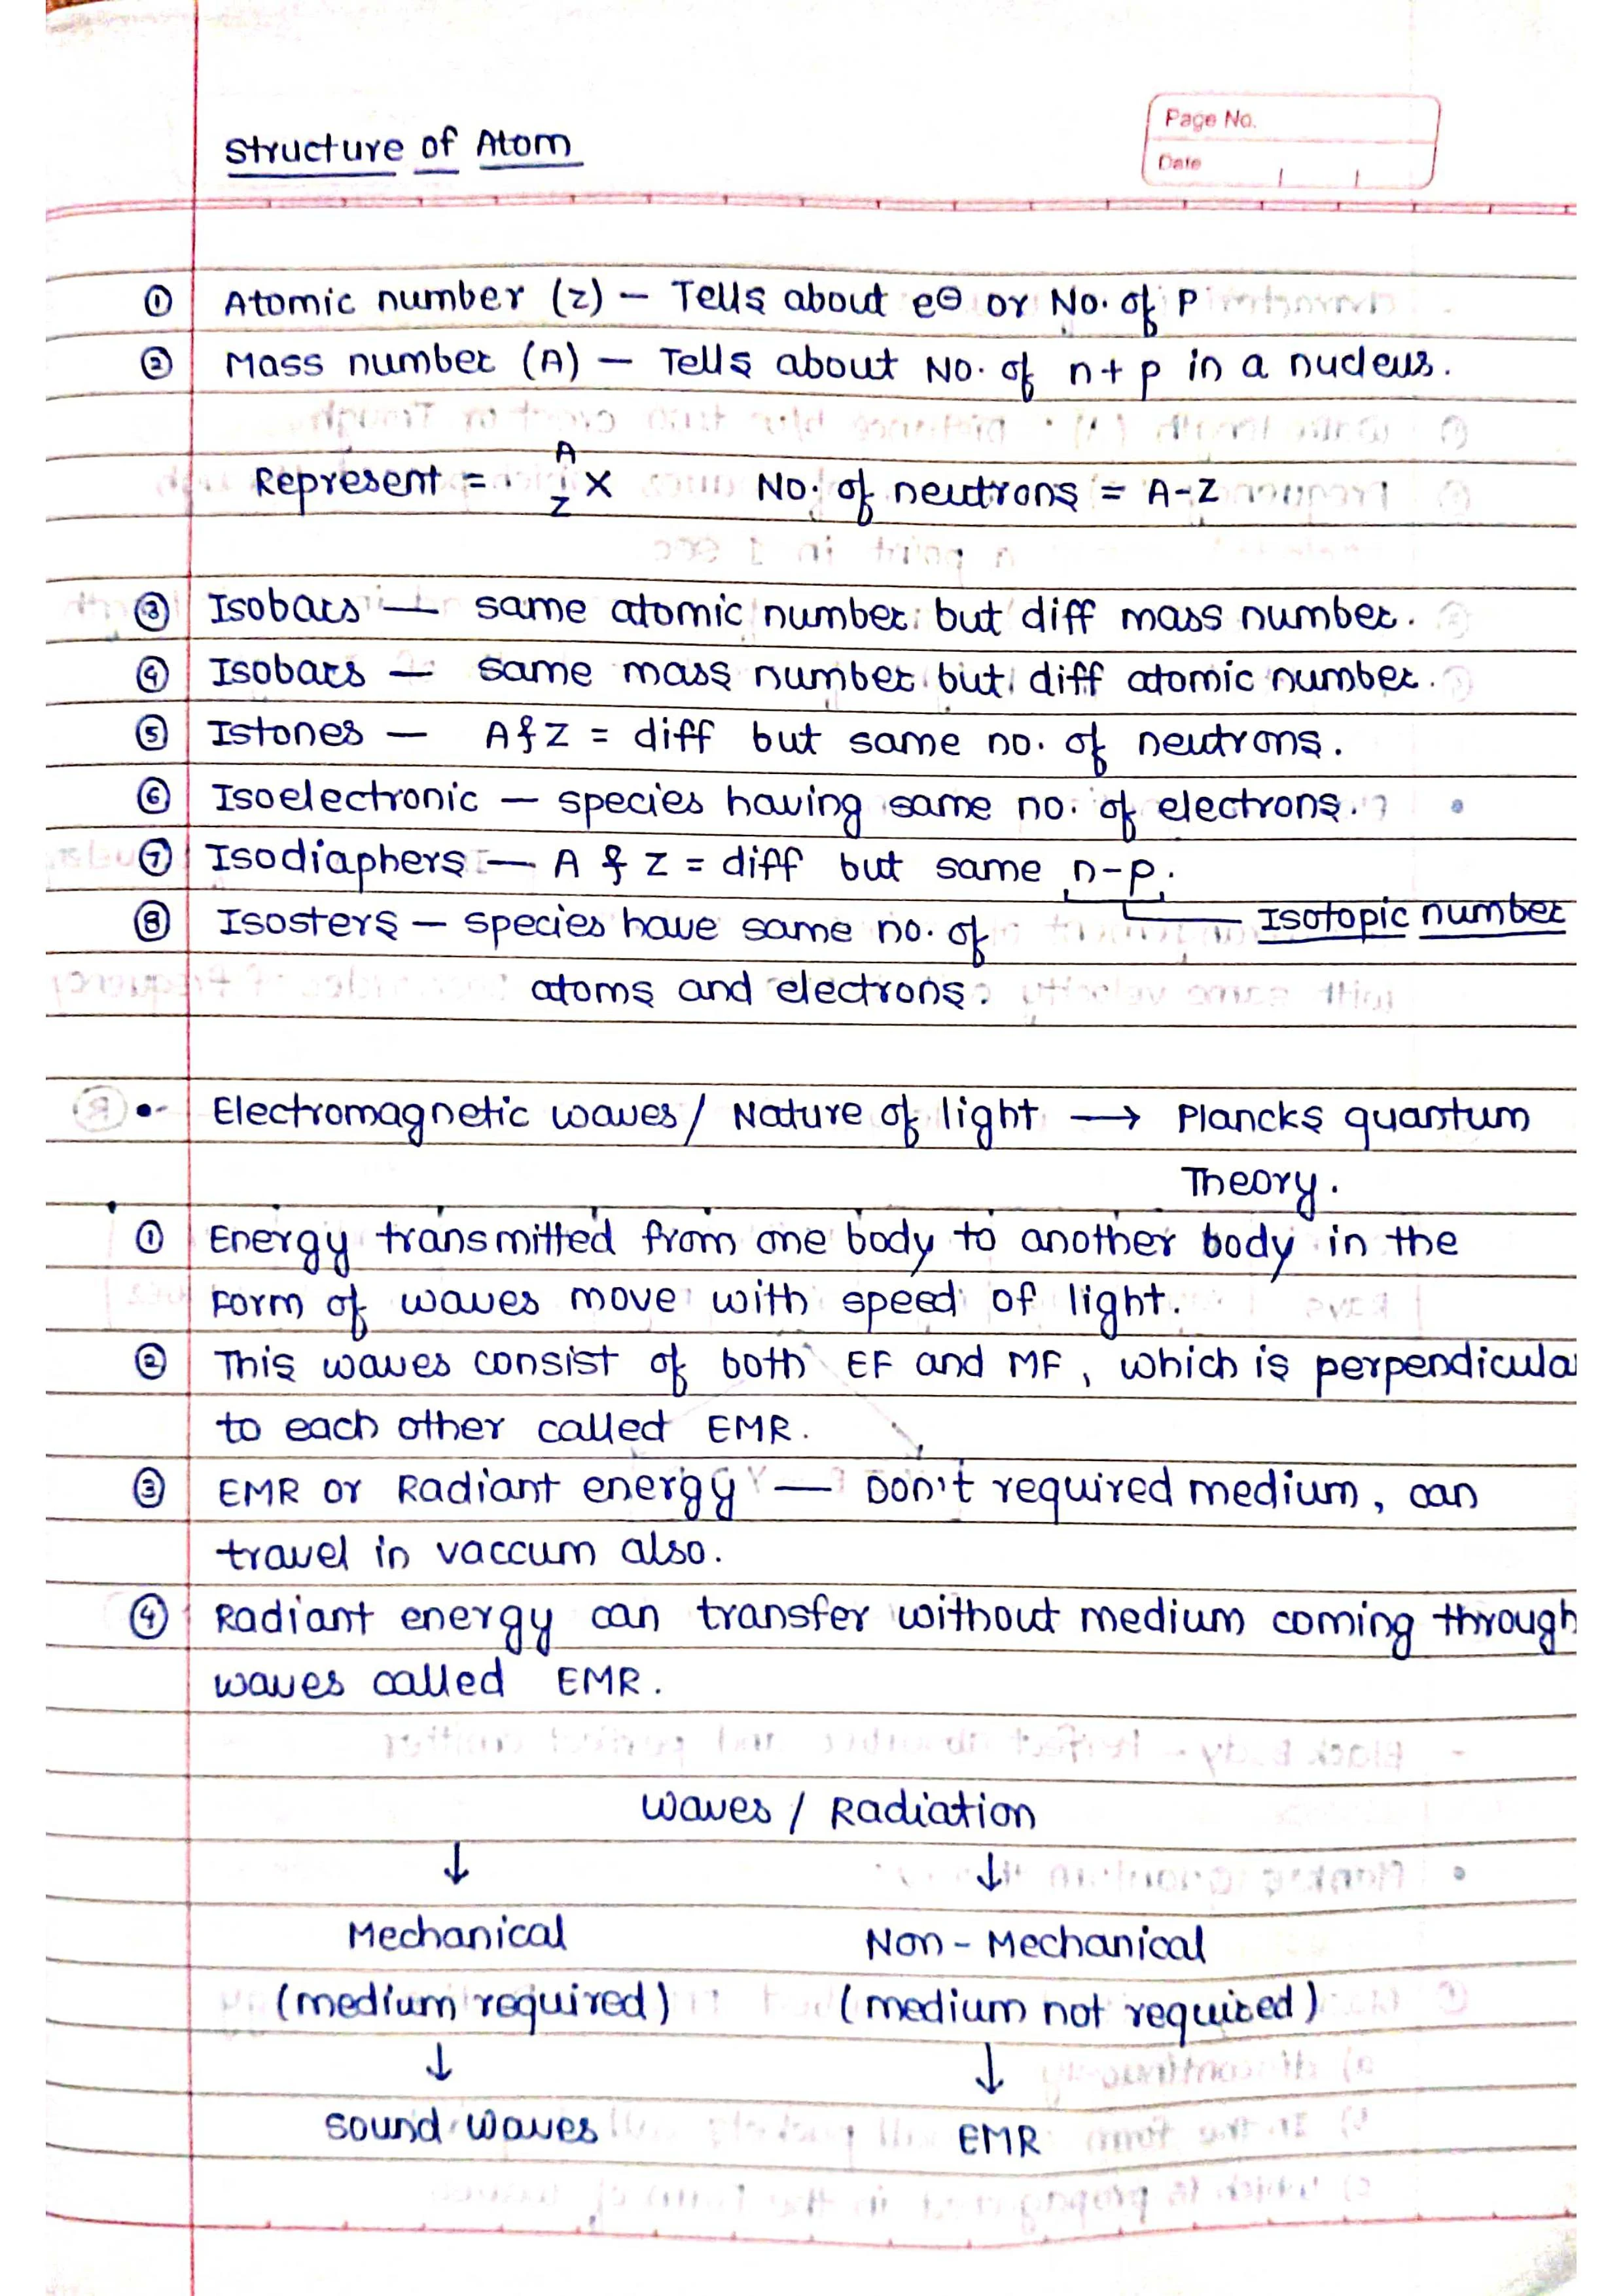 Structure of Atom
Page No.
Date
① Atomic number (z) — Tells about e⊖ or No. of P
② Mass number (A) — Tells about No. of n+p in a nucleus.
Represent = ᴬ_zX No. of neutrons = A-Z
③ Isobars — same atomic number but diff mass number.
④ Isobars — same mass number but diff atomic number.
⑤ Istones — A & Z = diff but same no. of neutrons.
⑥ Isoelectronic — species having same no. of electrons.
⑦ Isodiaphers — A & Z = diff but same n-p.
Isotopic number
⑧ Isosters — species have same no. of
atoms and electrons.
• Electromagnetic waves / Nature of light → Plancks quantum
Theory.
① Energy transmitted from one body to another body in the
form of waves move with speed of light.
② This waves consist of both EF and MF, which is perpendicula
to each other called EMR.
③ EMR or Radiant energy — Don't required medium, can
travel in vaccum also.
④ Radiant energy can transfer without medium coming through
waves called EMR.
Waves / Radiation
↓ ↓
Mechanical Non-Mechanical
(medium required) (medium not required)
↓ ↓
Sound waves EMR